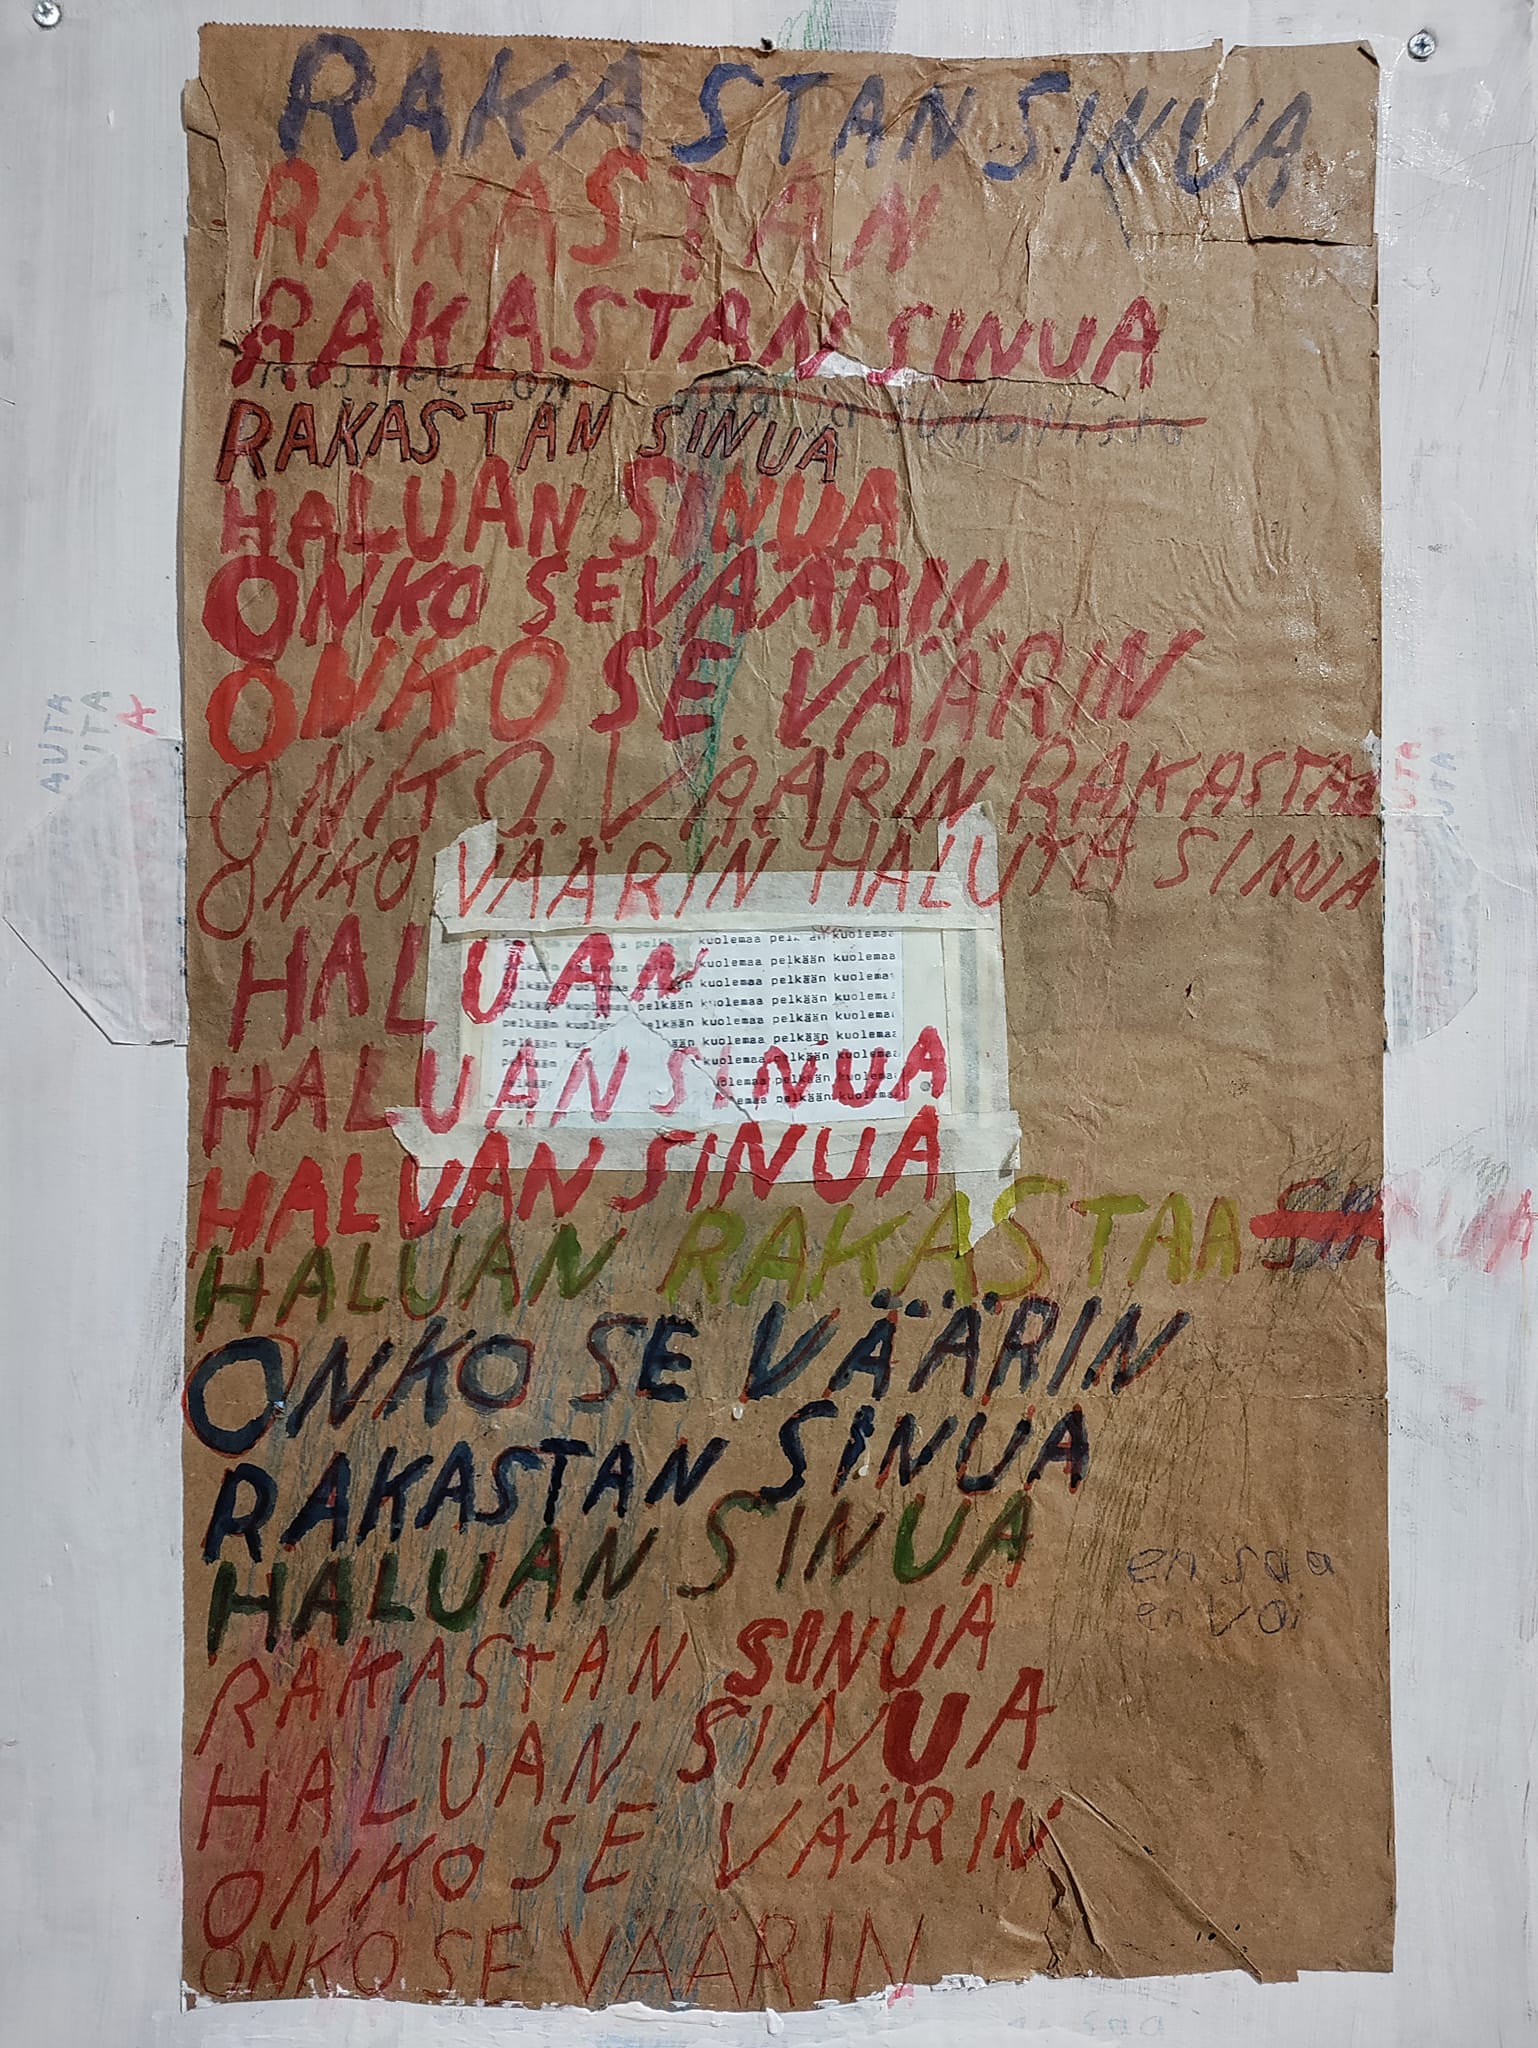 RAKASTAN SINUA
RAKASTAN
RAKASTAN SINUA
on ja surullista
RAKASTAN SINUA
HALUAN SINUA
ONKO SE VÄÄRIN
ONKO SE VÄÄRIN
AUTA
UTA
A
ONKO VÄÄRIN RAKASTAA
UTA
UTA
ONKO VÄÄRIN HALUTA SINUA
HALUAN
pelkään kuolemaa
kuolemaa pelkään kuolemaa
pelkään kuolemaa pelkään kuolemaa pelkään kuolema
pelkään kuolemaa pelkään kuolemaa pelkään kuolema
pelkään kuolem pelkään kuolemaa pelkään kuolemaa
pelkään kuo ään kuolemaa pelkään kuolemaa
pelkään kuolemaa pelkään kuolemaa
pelkään uolemaa pelkään kuolema
emaa pelkään kuolema
HALUAN SINUA
HALUAN SINUA
HALUAN RAKASTAA SINUA
ONKO SE VÄÄRIN
RAKASTAN SINUA
HALUAN SINUA
en saa
en voi
RAKASTAN SINUA
HALUAN SINUA
ONKO SE VÄÄRIN
ONKO SE VÄÄRIN